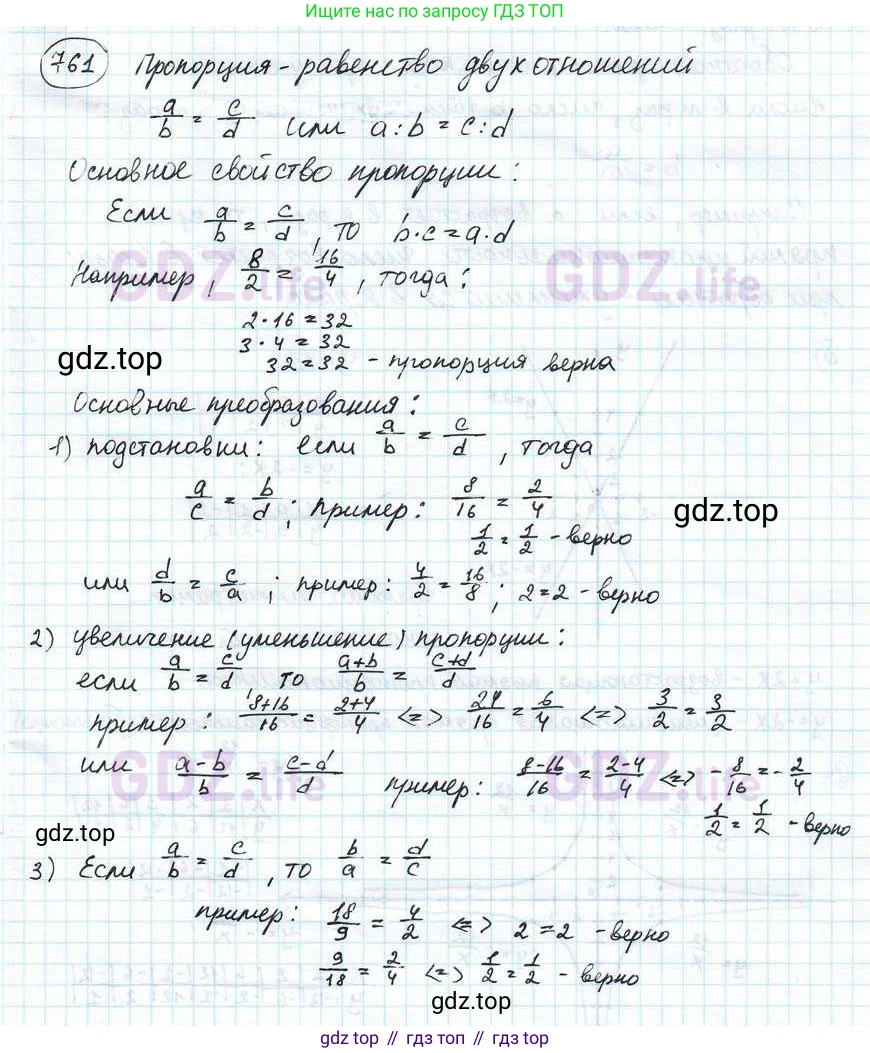 больше решебников по запросу ГДЗ ТОП
761 Пропорция - равенство двух отношений
a/b = c/d или a : b = c : d
Основное свойство пропорции:
Если a/b = c/d, то b·c = a·d
Например, 8/2 = 16/4, тогда:
GDZ.life GDZ.life
2·16 = 32
3·4 = 32
gdz.top
32 = 32 - пропорция верна
Основные преобразования:
1) подстановки: если a/b = c/d, тогда
a/c = b/d; пример: 8/16 = 2/4
gdz.top
1/2 = 1/2 - верно
или d/b = c/a; пример: 4/2 = 16/8; 2=2 - верно
2) увеличение (уменьшение) пропорции:
если a/b = c/d то (a+b)/b = (c+d)/d
пример: (8+16)/16 = (2+4)/4 <=> 24/16 = 6/4 <=> 3/2 = 3/2
или (a-b)/b = (c-d)/d пример: (8-16)/16 = (2-4)/4 <=> -8/16 = -2/4
GDZ.life GDZ.life
1/2 = 1/2 - верно
gdz.top
3) Если a/b = c/d, то b/a = d/c
пример: 18/9 = 4/2 <=> 2 = 2 - верно
9/18 = 2/4 <=> 1/2 = 1/2 - верно
gdz.top
gdz top // гдз топ // gdz.top